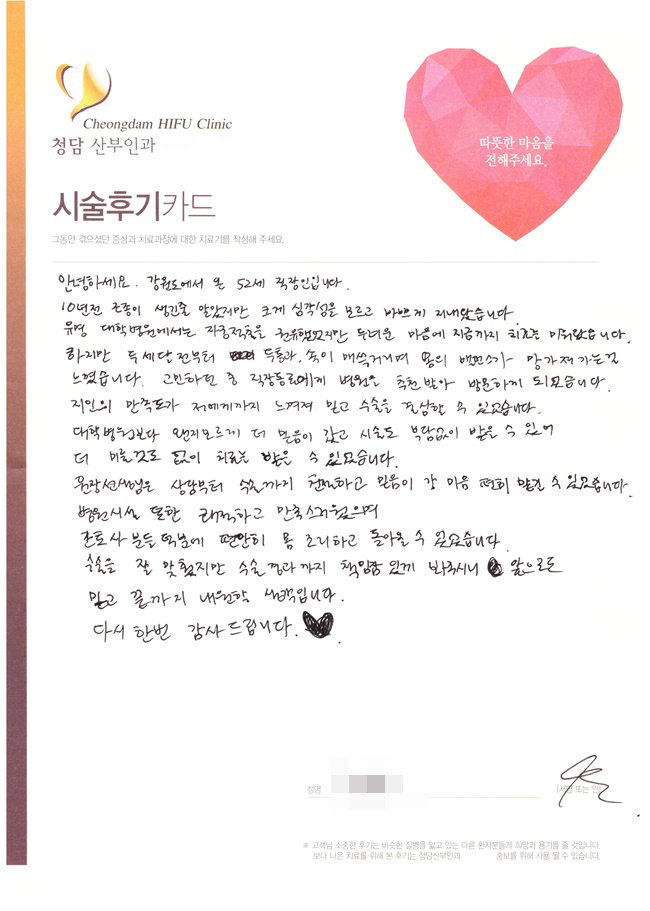 Cheongdam HIFU Clinic
청담 산부인과
따뜻한 마음을
전해주세요.
시술후기카드
그동안 겪으셨던 증상과 치료과정에 대한 치료기를 작성해 주세요.
안녕하세요. 강원도에서 온 52세 직장인입니다.
10년전 근종이 생긴줄 알았지만 크게 심각성을 모르고 바쁘게 지내왔습니다
유명 대학병원에서는 자궁적출을 권유했었지만 두려운 마음에 지금까지 치료는 미뤄왔습니다.
하지만 두세달 전부터 두통과, 속이 매쓱거리며 몸의 밸런스가 망가져가는걸
느꼈습니다. 고민하던 중 직장동료에게 병원을 추천받아 방문하게 되었습니다.
지인의 만족도가 저에게까지 느껴져 믿고 수술을 결심할 수 있었습니다.
대학병원보다 왠지모르게 더 믿음이 갔고 시술도 부담없이 받을 수 있어
더 미룰것도 없이 치료를 받을 수 있었습니다.
원장선생님은 상담부터 수술까지 친절하고 믿음이 가 마음 편히 맡길 수 있었습니다.
병원시설 또한 쾌적하고 만족스러웠으며
간호사분들 덕분에 편안히 몸 조리하고 돌아올 수 있었습니다
수술을 잘 맞췄지만 수술경과까지 책임감 있게 봐주시니 앞으로도
믿고 끝까지 내원할 생각입니다.
다시 한번 감사드립니다.
성명
(서명 또는 인)
※ 고객님 소중한 후기는 비슷한 질병을 앓고 있는 다른 환자분들게 희망과 용기를 줄 것입니다.
보다 나은 치료를 위해 본 후기는 청담산부인과 홍보를 위해 사용 될 수 있습니다.